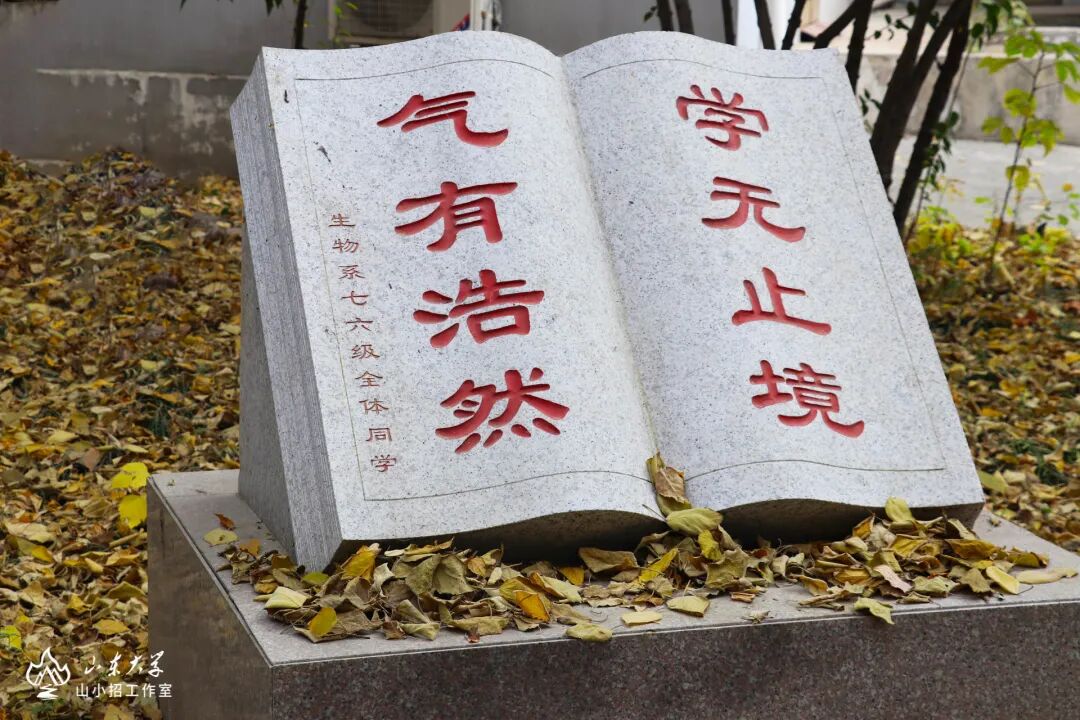 学无止境
气有浩然
生物系七六级全体同学
山东大学
山小招工作室